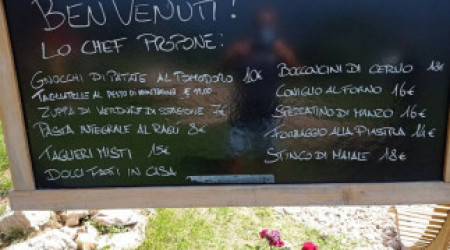 BENVENUTI!
LO CHEF PROPONE:
GNOCCHI DI PATATE AL POMODORO 10€
TAGLIATELLE AL PESTO DI € 11,00
ZUPPA DI VERDURE DI STAGIONE 7€
PASTA INTEGRALE AL RAGÙ 8€
TAGLIERI MISTI 15€
DOLCI FATTI IN CASA
BOCCONCINI DI CERVO 18€
CONIGLIO AL FORNO 16€
SPEZZATINO DI MANZO 16€
FORMAGGIO ALLA PIASTRA 14€
STINCO DI MAIALE 18€